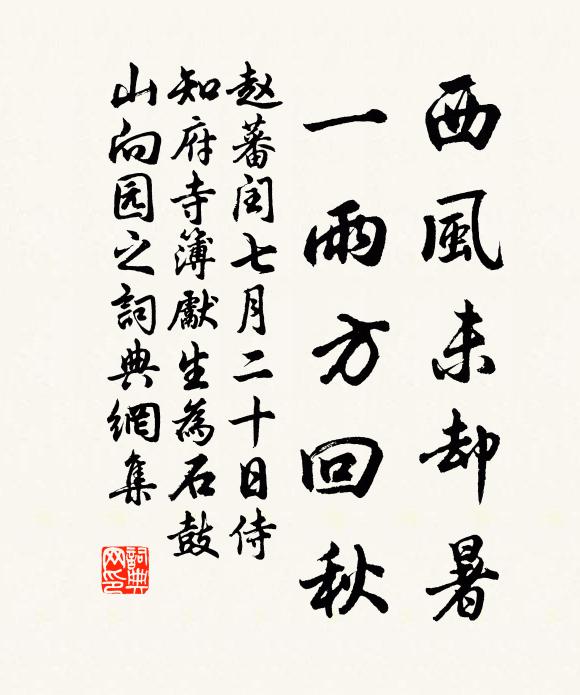 西風未却暑
一雨方回秋
赵蕃闰七月二十日侍
知府寺簿獻生為石鼓
山向园之詞典網集
詞典
网印